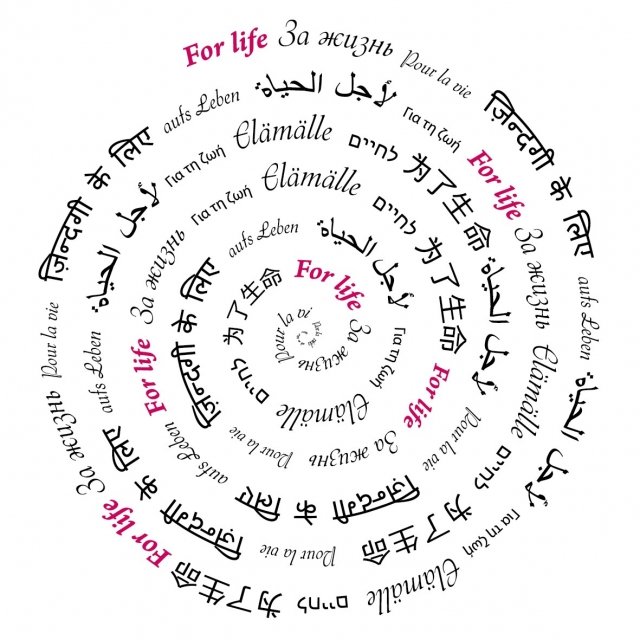 For life
За жизнь
Pour la vie
ज़िन्दगी के लिए
aufs Leben
لأجل الحياة
Για τη ζωή
Elämälle
לחיים
为了生命
For life
За жизнь
Pour la vie
ज़िन्दगी के लिए
aufs Leben
لأجل الحياة
Για τη ζωή
For life
За жизнь
Elämälle
לחיים
为了生命
Pour la vie
ज़िन्दगी के लिए
aufs Leben
لأجل الحياة
Για τη ζωή
Elämälle
לחיים
为了生命
لأجل الحياة
Pour la vie
ज़िन्दगी के लिए
aufs Leben
For life
За жизнь
Για τη ζωή
Elämälle
לחיים
为了生命
For life
За жизнь
Pour la vie
ज़िन्दगी के लिए
aufs Leben
لأجل الحياة
Για τη ζωή
Elämälle
לחיים
为了生命
For life
За жизнь
Pour la vi